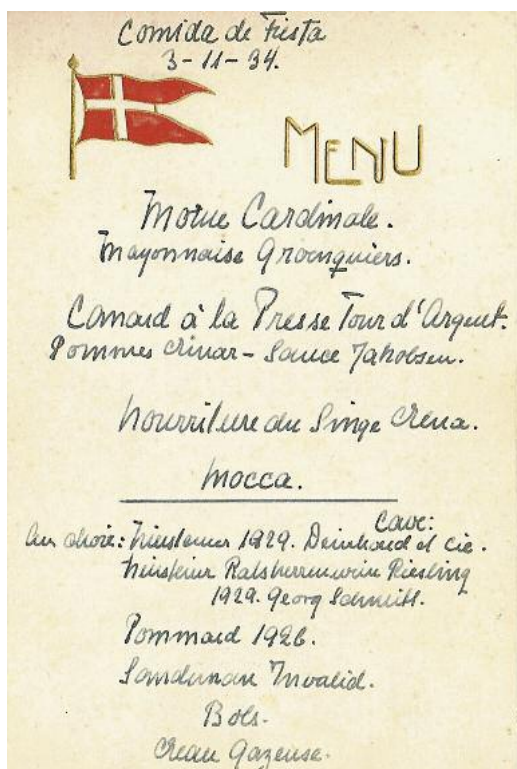 Comida de Fiesta
3-11-34.
MENU
Morue Cardinale.
Mayonnaise Groenquiers.
Canard à la Presse Tour d'Argent.
Pommes Crinar - Sauce Jakobsen.
Nourriture du Singe Crena.
Mocca.
Cave:
Au choix: Niersteiner 1929. Deinhard et Cie.
Niersteiner Ratsherrenwein Riesling
1929. Georg Schmitt.
Pommard 1926.
Sandeman Invalid.
Bols.
Gazeuse.